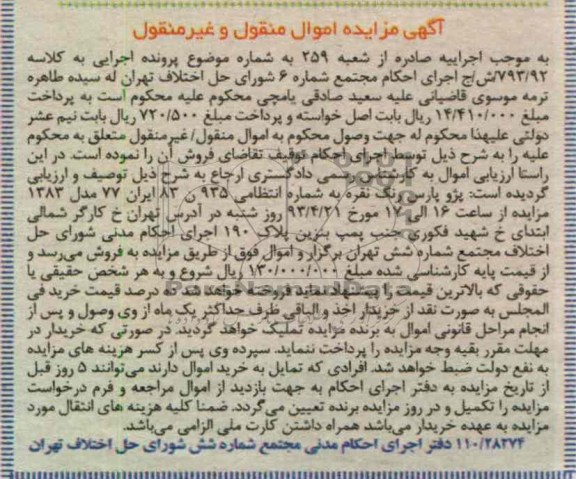 آگهی مزایده اموال منقول و غیرمنقول
به موجب اجراییه صادره از شعبه ۲۵۹ به شماره موضوع پرونده اجرایی به کلاسه
۷۹۳/۹۲/ش/ج اجرای احکام مجتمع شماره ۶ شورای حل اختلاف تهران له سیده طاهره
ترمه موسوی قاضیانی علیه سعید صادقی یامچی محکوم علیه محکوم است به پرداخت
مبلغ ۱۴/۴۱۰/۰۰۰ ریال بابت اصل خواسته و پرداخت مبلغ ۷۲۰/۵۰۰ ریال بابت نیم عشر
دولتی علیهذا محکوم له جهت وصول محکوم به اموال منقول/غیرمنقول متعلق به محکوم
علیه را به شرح ذیل توسط اجرای احکام توقیف تقاضای فروش آن را نموده است. در این
راستا ارزیابی اموال به کارشناس رسمی دادگستری ارجاع به شرح ذیل توصیف و ارزیابی
گردیده است: پژو پارس رنگ نقره به شماره انتظامی ۹۳۵ ن ۸۳ ایران ۷۷ مدل ۱۳۸۳
مزایده از ساعت ۱۶ الی ۱۷ مورخ ۹۳/۴/۲۱ روز شنبه در آدرس تهران خ کارگر شمالی
ابتدای خ شهید فکوری جنب پمپ بنزین پلاک ۱۹۰ اجرای احکام مدنی شورای حل
اختلاف مجتمع شماره شش تهران برگزار و اموال فوق از طریق مزایده به فروش می‌رسد و
از قیمت پایه کارشناسی شده مبلغ ۱۳۰/۰۰۰/۰۰۰ ریال شروع و به هر شخص حقیقی یا
حقوقی که بالاترین قیمت را پیشنهاد نماید فروخته خواهد شد ده درصد قیمت خرید فی
المجلس به صورت نقد از خریدار اخذ و الباقی ظرف حداکثر یک ماه از وی وصول و پس از
انجام مراحل قانونی اموال به برنده مزایده تملیک خواهد گردید. در صورتی که خریدار در
مهلت مقرر بقیه وجه مزایده را پرداخت ننماید. سپرده وی پس از کسر هزینه های مزایده
به نفع دولت ضبط خواهد شد. افرادی که تمایل به خرید اموال دارند می‌توانند ۵ روز قبل
از تاریخ مزایده به دفتر اجرای احکام به جهت بازدید از اموال مراجعه و فرم درخواست
مزایده را تکمیل و در روز مزایده برنده تعیین می‌گردد. ضمنا کلیه هزینه های انتقال مورد
مزایده به عهده خریدار می‌باشد همراه داشتن کارت ملی الزامی می‌باشد.
۱۱۰/۲۸۲۷۴ دفتر اجرای احکام مدنی مجتمع شماره شش شورای حل اختلاف تهران